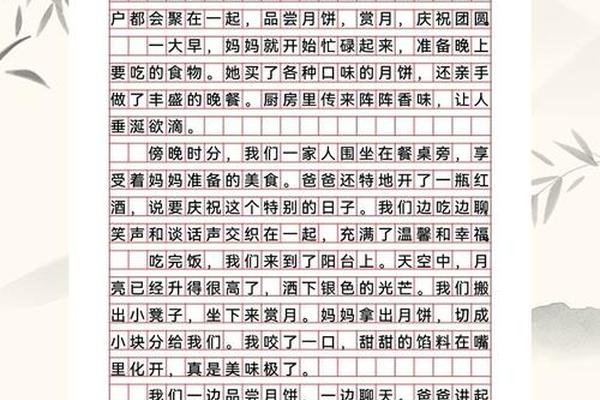 户都会聚在一起，品尝月饼，赏月，庆祝团圆
一大早，妈妈就开始忙碌起来，准备晚上
要吃的食物。她买了各种口味的月饼，还亲手
做了丰盛的晚餐。厨房里传来阵阵香味，让人
垂涎欲滴。
傍晚时分，我们一家人围坐在餐桌旁，享
受着妈妈准备的美食。爸爸还特地开了一瓶红
酒，说要庆祝这个特别的日子。我们边吃边聊
笑声和谈话声交织在一起，充满了温馨和幸福
吃完饭，我们来到了阳台上。天空中，月
亮已经升得很高了，洒下银色的光芒。我们搬
出小凳子，坐下来赏月。妈妈拿出月饼，切成
小块分给我们。我咬了一口，甜甜的馅料在嘴
里化开，真是美味极了。
我们一边品尝月饼，一边聊天。爸爸讲起